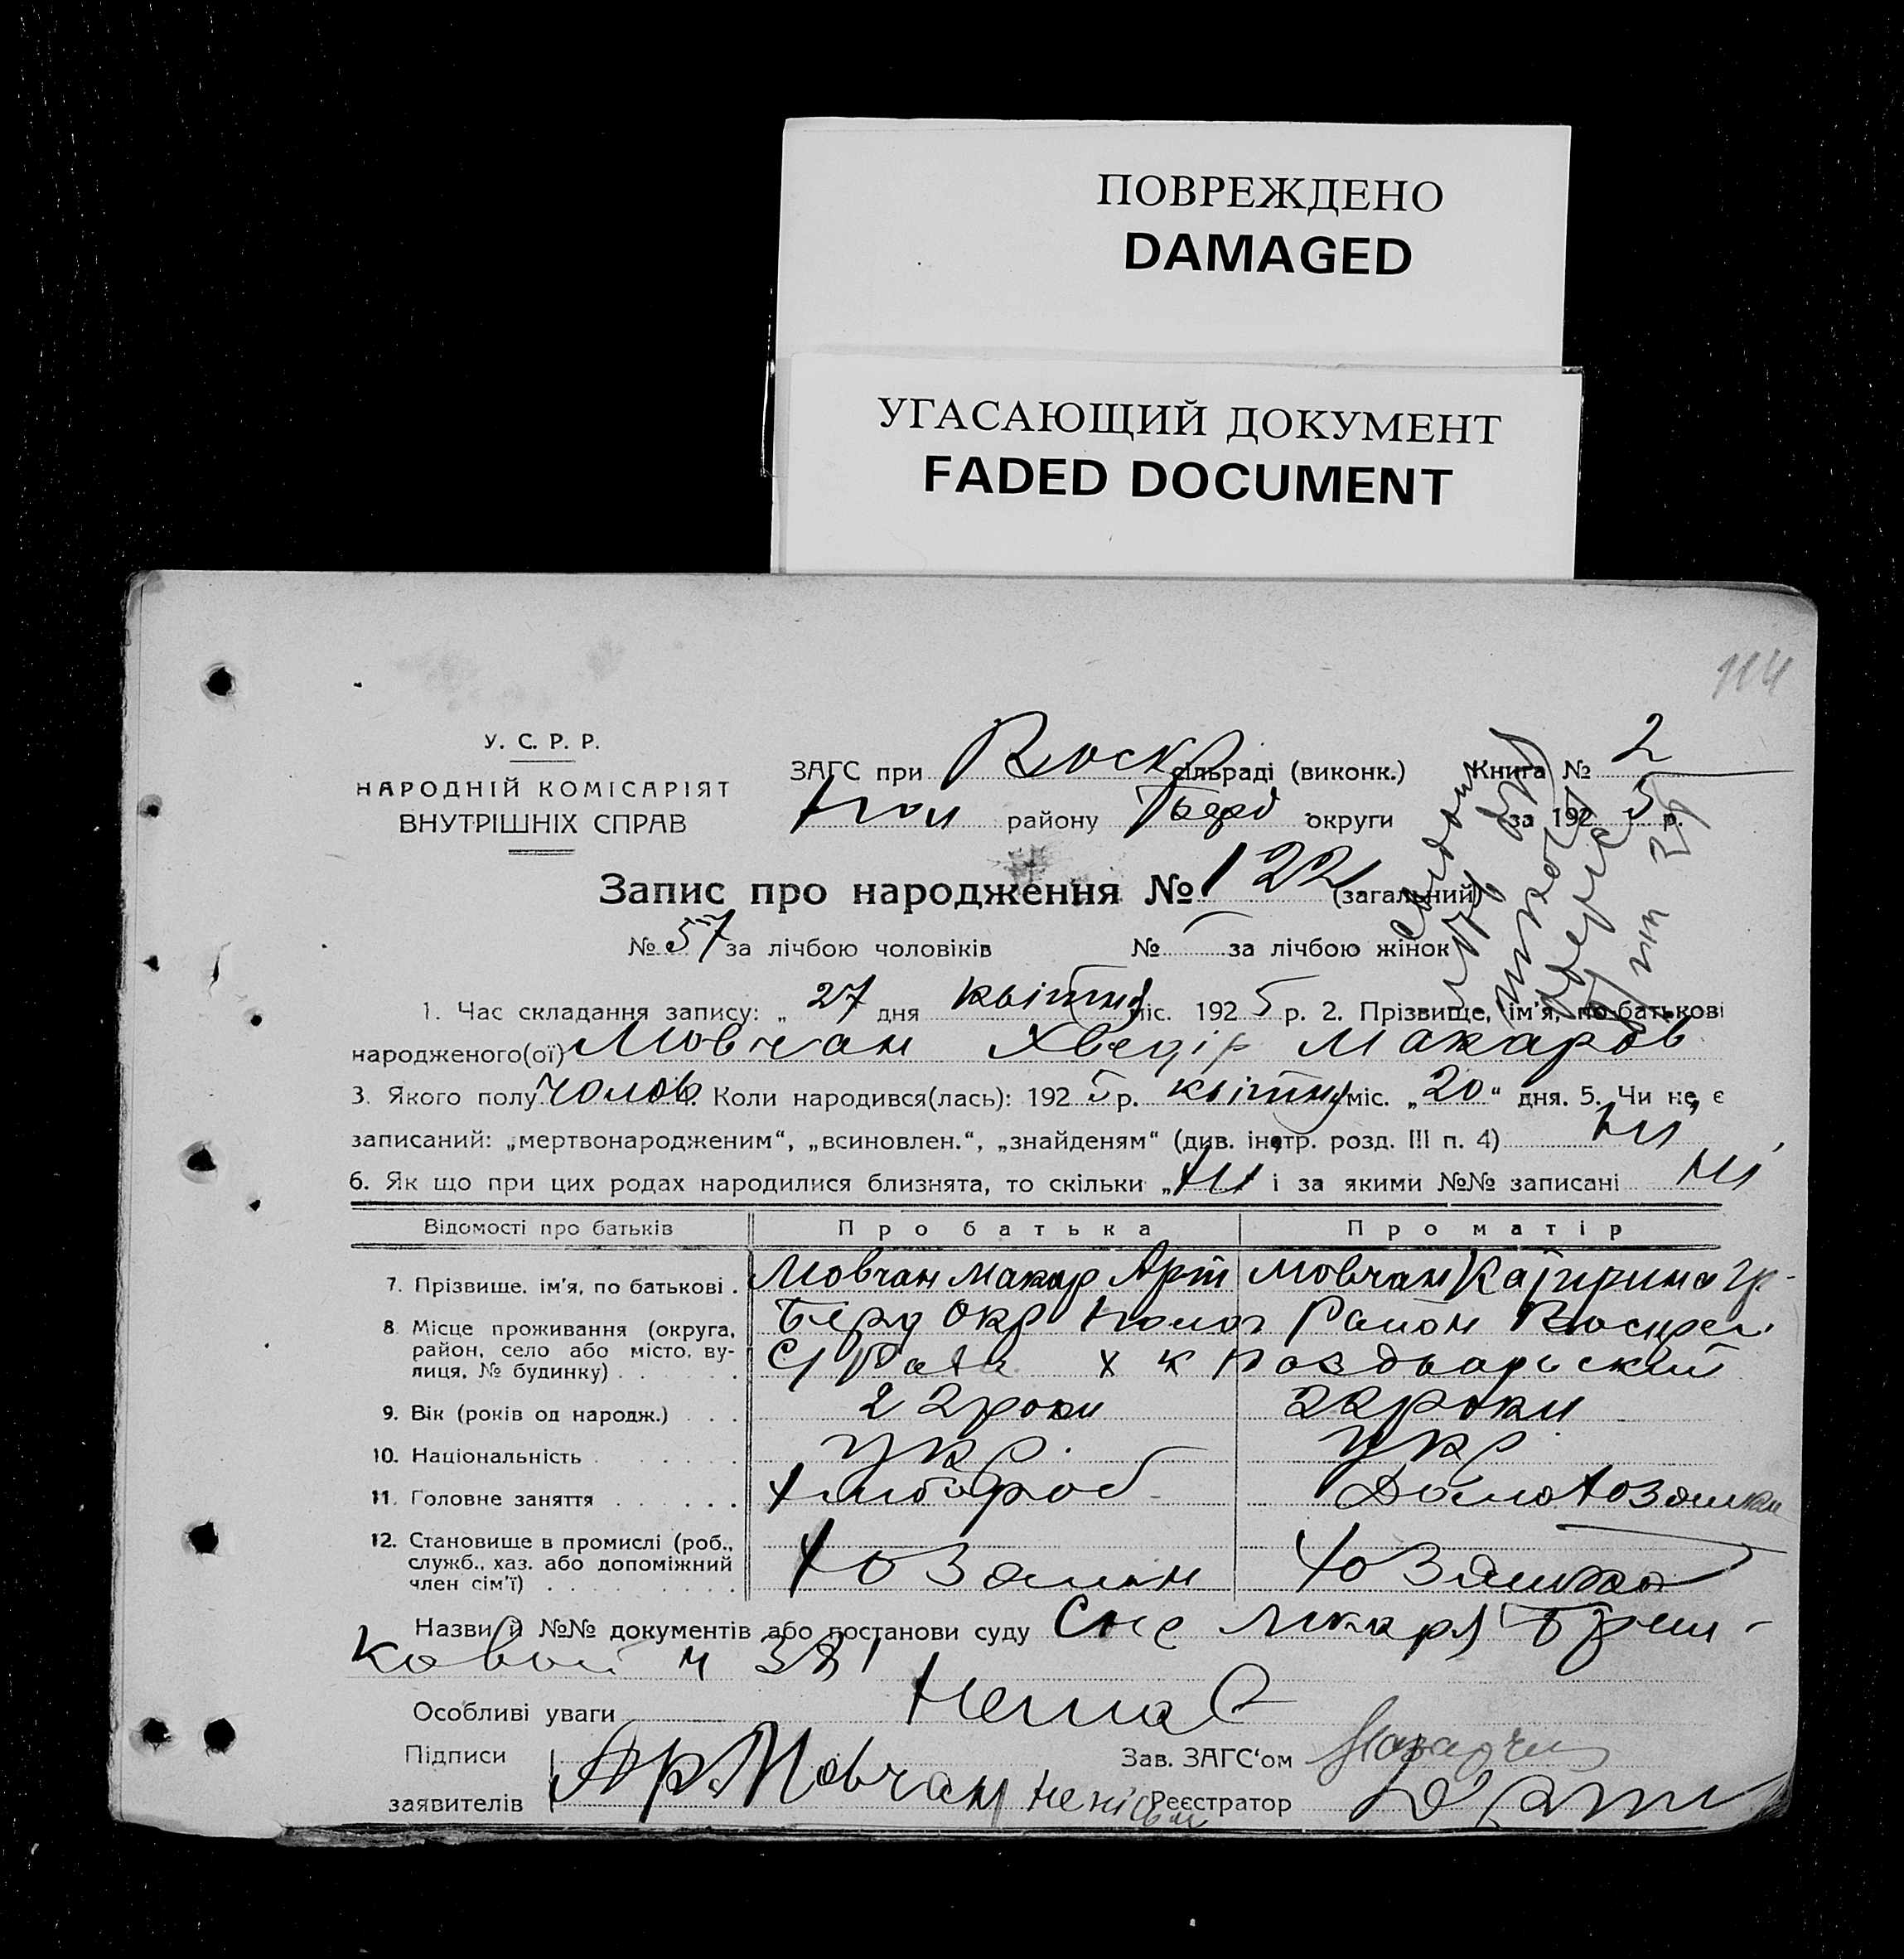 ПОВРЕЖДЕНО
DAMAGED
УГАСАЮЩИЙ ДОКУМЕНТ
FADED DOCUMENT
114
У. С. Р. Р.
НАРОДНІЙ КОМІСАРІЯТ
ВНУТРІШНІХ СПРАВ
ЗАГС при Воскр сільраді (виконк.) Книга № 2
Пол району Берд округи за 1925 р.
Запис про народження № 122 (загальний)
№ 57 за лічбою чоловіків № — за лічбою жінок
1. Час складання запису: „ 27 дня квітня міс. 1925 р. 2. Прізвище, ім'я, по батькові
народженого(ої) Мовчан Хведір Макаров
3. Якого полу чолов. Коли народився(лась): 1925 р. квітня міс. „20“ дня. 5. Чи не є
записаний: „мертвонародженим“, „всиновлен.“, „знайденям“ (див. інстр. розд. III п. 4) Ні
6. Як що при цих родах народилися близнята, то скільки „Ні і за якими №№ записані Ні
Відомості про батьків Про батька Про матір
7. Прізвище, ім'я, по батькові . Мовчан Макар Арт Мовчан Катирина Гр-
8. Місце проживання (округа, район, село або місто, вулиця, № будинку) Берд Окр Полог Район Воскресе
С/Рада х к
9. Вік (років од народж.) . . . 22 роки 22 роки
10. Національність укр. укр.
11. Головне заняття хлібороб Домохозяйка
12. Становище в промислі (роб.,
служб., хаз. або допоміжний
член сім'ї) хозяин хозяйка
Назви й №№ документів або постанови суду лікаря
ковой № 331
Особливі уваги Немає
Підписи Ар Мовчан Зав. ЗАГС'ом
заявителів Реєстратор